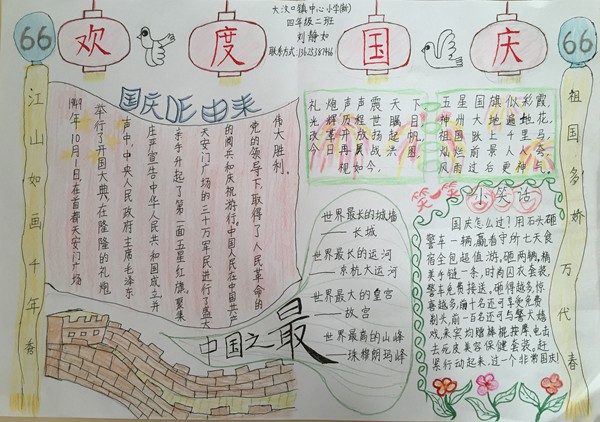 大汶口镇中心小学(新)
四年级二班
刘静如
联系方式:13625387966
66
欢度国庆
66
江山如画千年秀
祖国多娇万代春
国庆DE由来
1949年10月1日在首都天安门广场
举行了开国大典,在隆隆的礼炮
声中,中央人民政府主席毛泽东
庄严宣告中华人民共和国成立并
亲手升起了第一面五星红旗。聚集
天安门广场的三十万军民进行了盛大
的阅兵和庆祝游行,中国人民在中国共产
党的领导下,取得了人民革命的
伟大胜利。
礼炮声声震天下
光辉历程世瞩目
改革开放扬起帆
今日再展战洪图
祝如今,
五星国旗似彩霞,
神州大地遍地花,
祖国跃上千里马,
灿烂前景人人夸
风雨过后更神气
中国之最
世界最长的城墙
——长城
世界最长的运河
——京杭大运河
世界最大的皇宫
——故宫
世界最高的山峰
——珠穆朗玛峰
笑一笑
小笑话
国庆怎么过?用石头砸
警车一辆,赢看守所七天食
宿全包超值游,砸两辆,精
美手链一条,时尚囚衣套装,
警车免费接送。砸得越多,惊
喜越多,前十名还可享受免费
剃头,前一百名还可与警犬嬉
戏,来实均赠棒棍按摩、电击
去死皮美容保健套装。赶
累行动起来,过一个非常国庆!